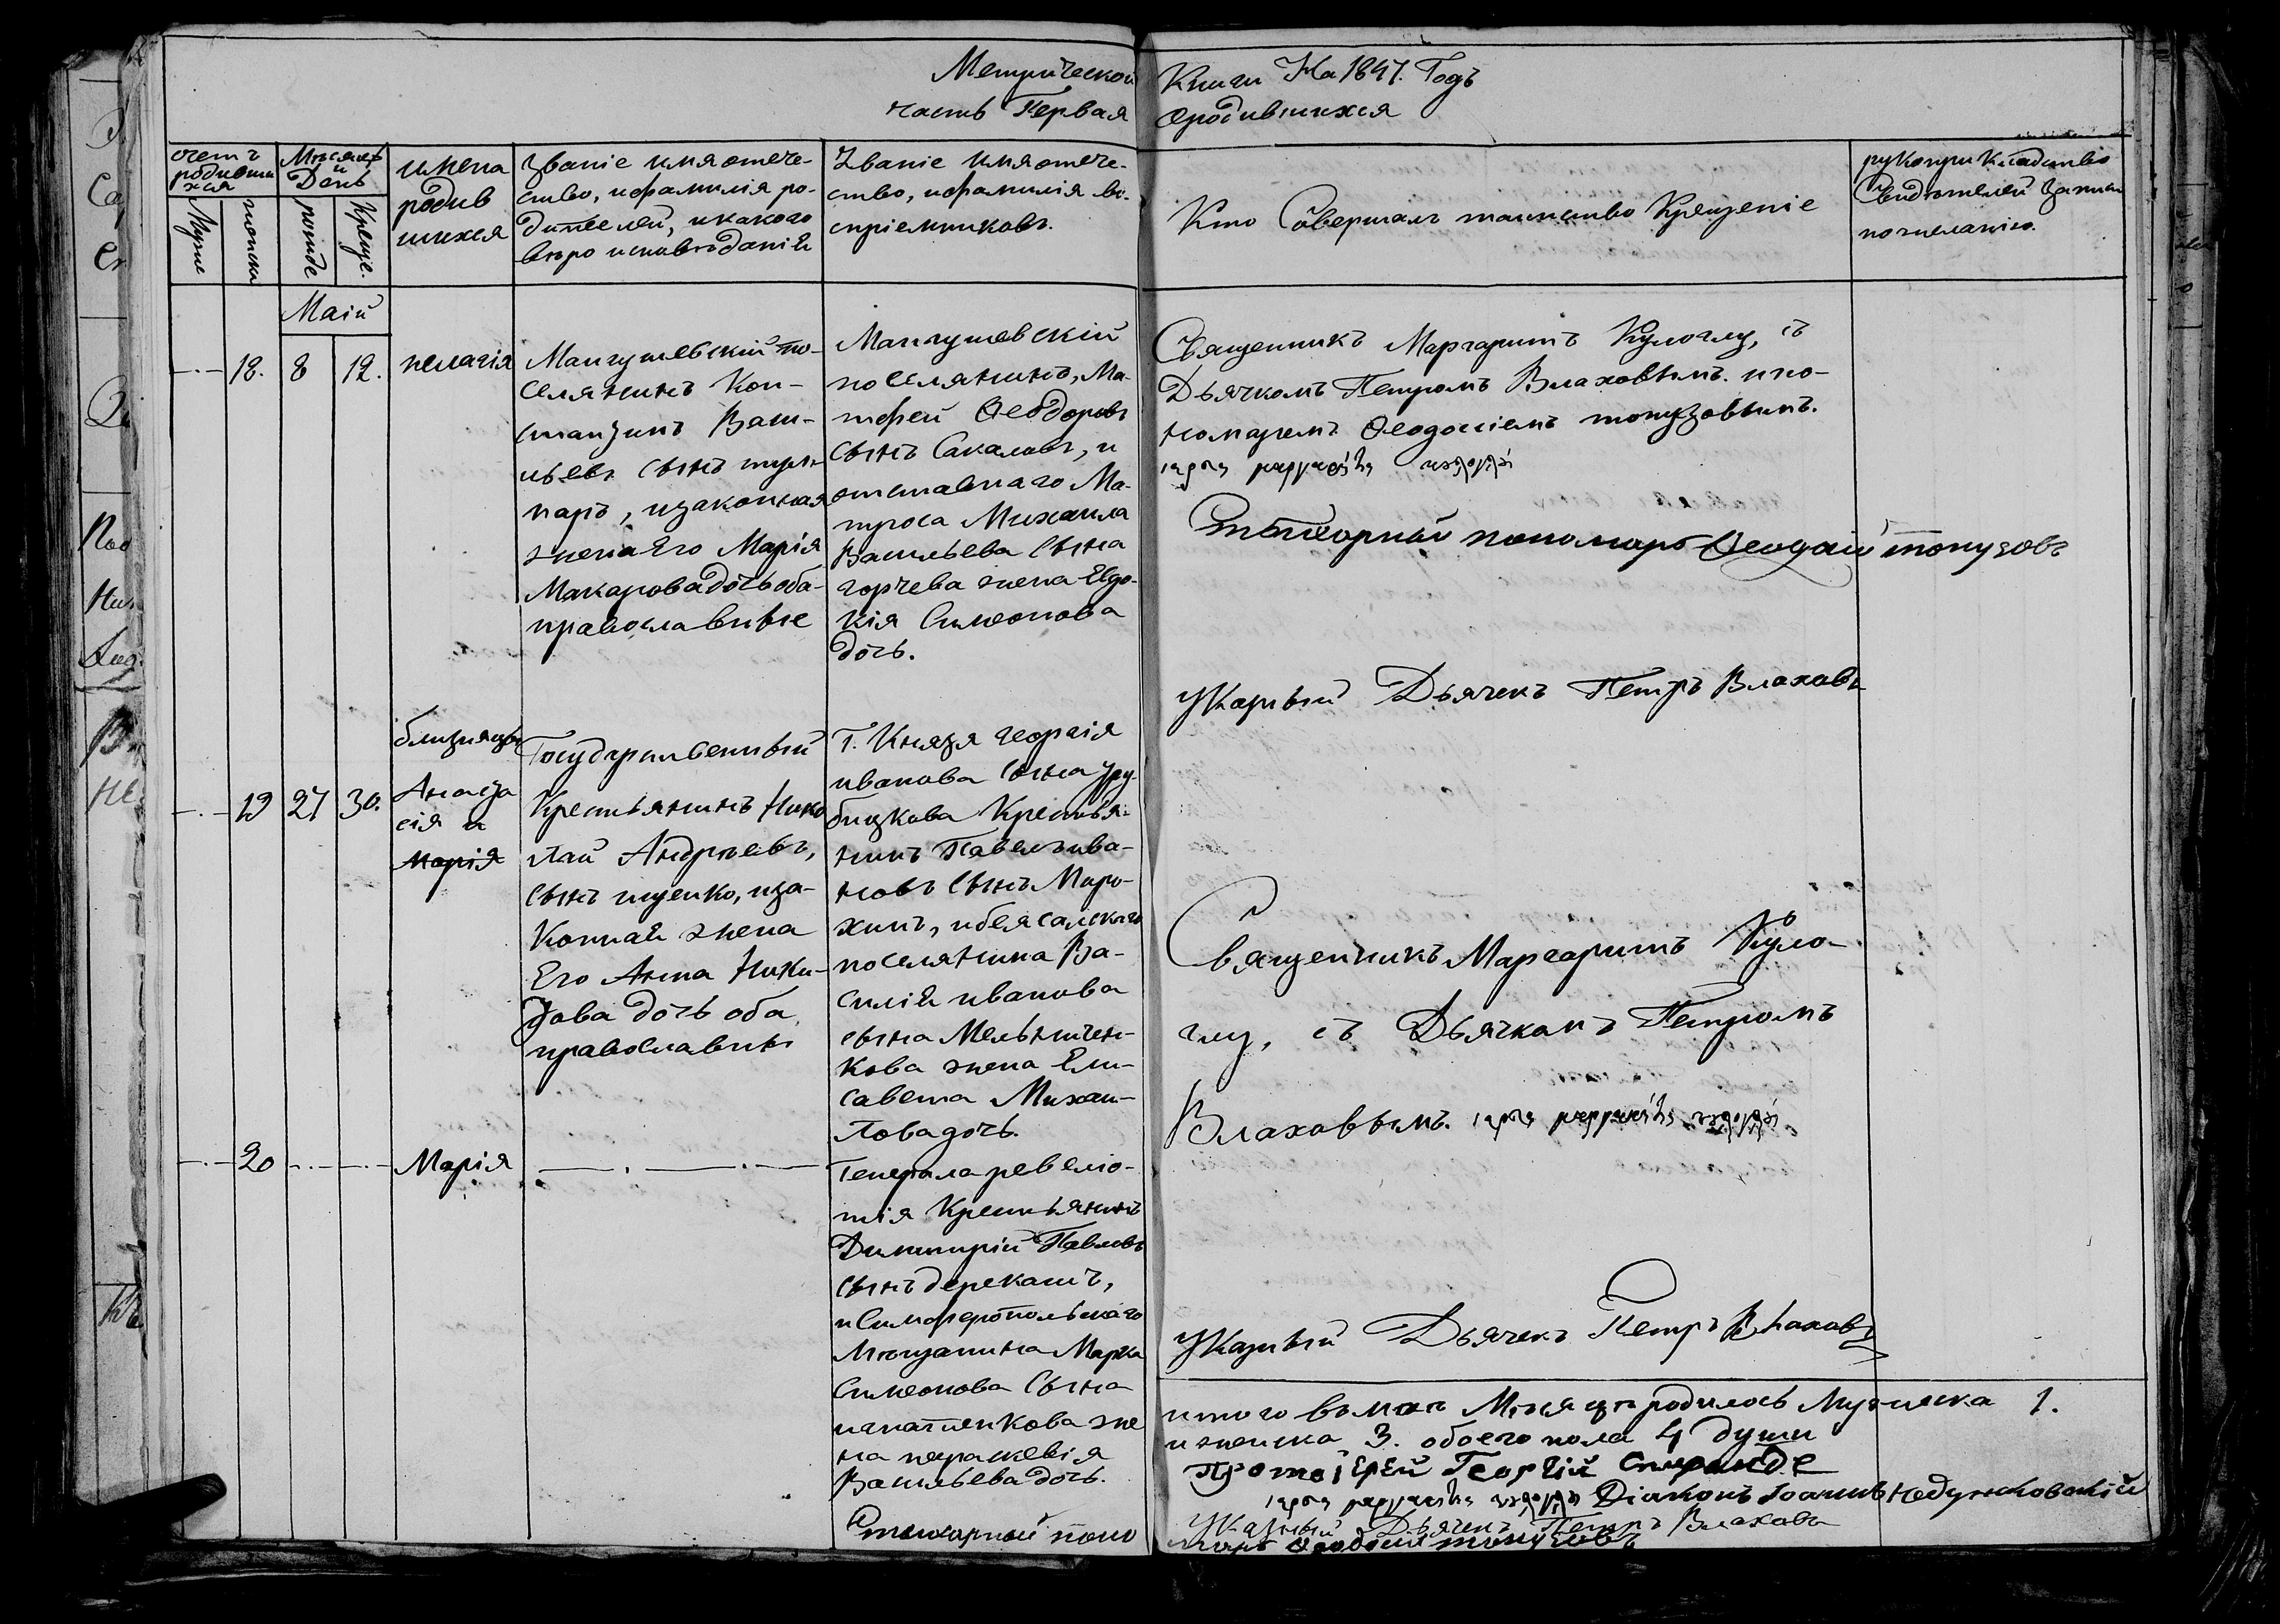 Метрической Книги На 1847. Годъ
часть Первая ородившихся
счетъ
родивши
хся
Мужие
женска
Мѣсяцъ
и
День
рожде
Креще.
имена
родив
шихся
Званіе имя отече-
ство, ифамилія ро-
дителей, икакого
вѣро исповѣданій
Званіе имя отече-
ство, ифамилія во-
спріемниковъ.
Кто Совершалъ таинство Крещеніе
рукоприкладство
Свидѣтелей Записи
пожеланію.
Маій
18. 8 12. пелагія
Мангушевскій по-
селянинъ Кон-
стантинъ Васи-
льевъ сынъ
наръ, изаконная
жена Его Марія
Макарова дочь оба-
православные
Мангушевскій
поселянинъ, Ма-
тфей Ѳеодоровъ
сынъ Сакаловъ, и
отставнаго Ма-
троса Михаила
Васильева сына
горчева жена Евдо-
кія Симеонова
дочь.
Священникъ Маргаритъ Кулоглу, съ
Дьячкомъ Петромъ Влаховымъ. ипо-
номаремъ Ѳеодосіемъ топузовымъ.
Штатнорный пономарь Ѳеодосій топузовъ
Указный Дьячекъ Петръ Влаховъ
близнецы
19 27 30. Анаста
сія и
Марія
Государственный
Крестьянинъ Нико
лай Андрѣевъ,
сынъ ищенко, иза-
конная жена
Его Анна Ники-
това дочь оба
православны
Г. Князя георгія
иванова сына
Крестья-
нинъ Павелъ ива-
новъ сынъ Маро-
хинъ, ибеясалскаго
поселянина Ва-
силія иванова
сына Мельничен-
кова жена Ели-
савета Михаи-
лова дочь.
Священникъ Маргаритъ Куло-
глу, съ Дьячкомъ Петромъ
Влаховымъ.
20 Марія
Генерала ревеліо-
тія Крестьянинъ
Димитрій Павловъ
сынъ дерекашъ,
и Симферопольскаго
Мѣщанина Марка
Симеонова сына
игнатенкова же
на параскевія
Васильева дочь.
Указный Дьячекъ Петръ Влаховъ
итого вмаѣ Мѣсяцѣ родилось Мужеска 1.
иженска 3. обоего пола 4 души
Протоіерей Георгій Спиранде
Діаконъ Іоаннъ
Указный Дьячекъ Петръ Влаховъ
поно
марь Ѳеодосій топузовъ